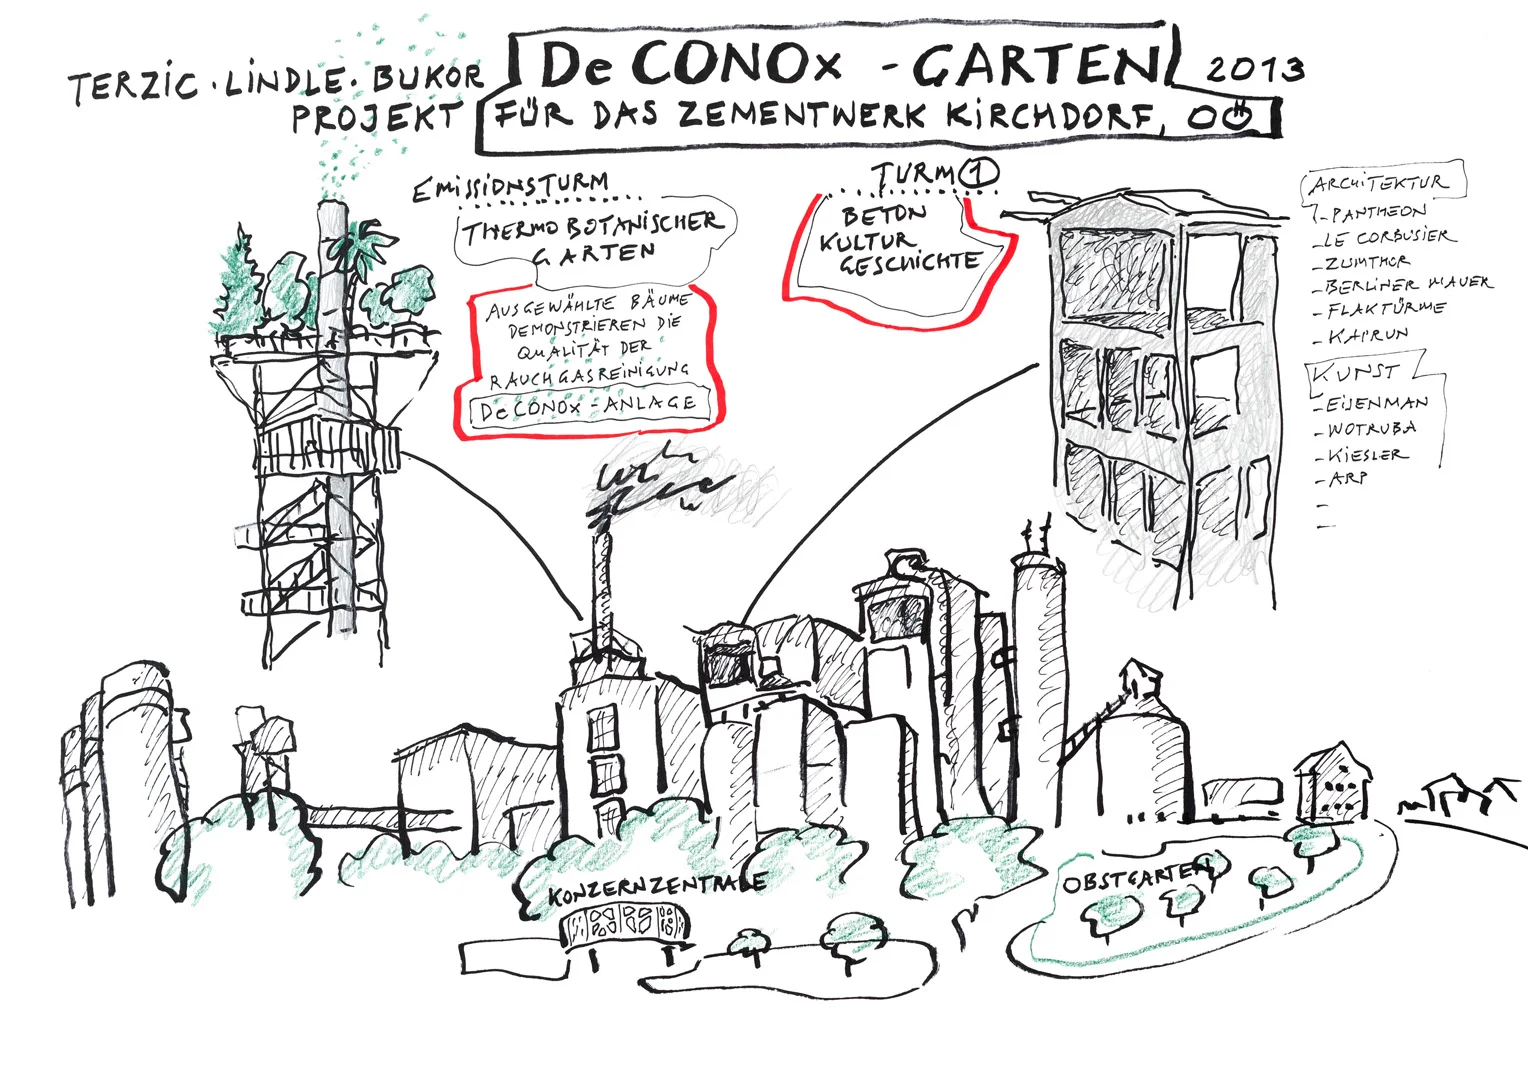 TERZIC · LINDLE · BUKOR
PROJEKT
DeCONOx - GARTEN
2013
FÜR DAS ZEMENTWERK KIRCHDORF, OÖ
EMISSIONSTURM
THERMOBOTANISCHER
GARTEN
AUSGEWÄHLTE BÄUME
DEMONSTRIEREN DIE
QUALITÄT DER
RAUCHGASREINIGUNG
DeCONOx - ANLAGE
TURM 1
BETON
KULTUR
GESCHICHTE
ARCHITEKTUR
- PANTHEON
- LE CORBUSIER
- ZUMTHOR
- BERLINER MAUER
- FLAKTÜRME
- KAPRUN
KUNST
- EISENMAN
- WOTRUBA
- KIESLER
- ARP
-
-
KONZERNZENTRALE
OBSTGARTEN